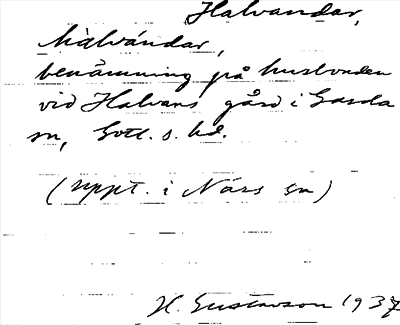 Halvandar,
halvándar,
benämning på husbonden
vid Halvans gård i Garda
sn, Gotl. s. hd.
(uppt. i Närs sn)
H. Gustavson 1937